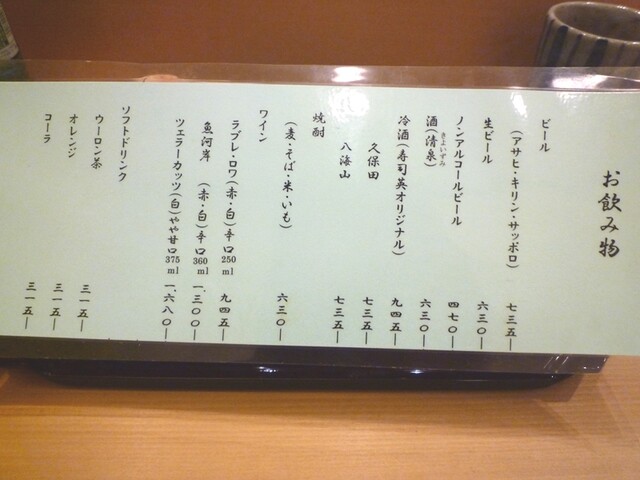 お飲み物
ビール
(アサヒ・キリン・サッポロ) 七三五―
生ビール 六三〇―
ノンアルコールビール 四七〇―
酒(清泉) 六三〇―
きよいずみ
冷酒(寿司英オリジナル) 九四五―
久保田 七三五―
八海山 七三五―
焼酎
(麦・そば・米・いも) 六三〇―
ワイン
ラブレ・ロワ(赤・白)辛口250ml 九四五―
魚河岸 (赤・白)辛口360ml 一、三〇〇―
ツェラーカッツ(白)やや甘口375ml 一、六八〇―
ソフトドリンク
ウーロン茶 三一五―
オレンジ 三一五―
コーラ 三一五―